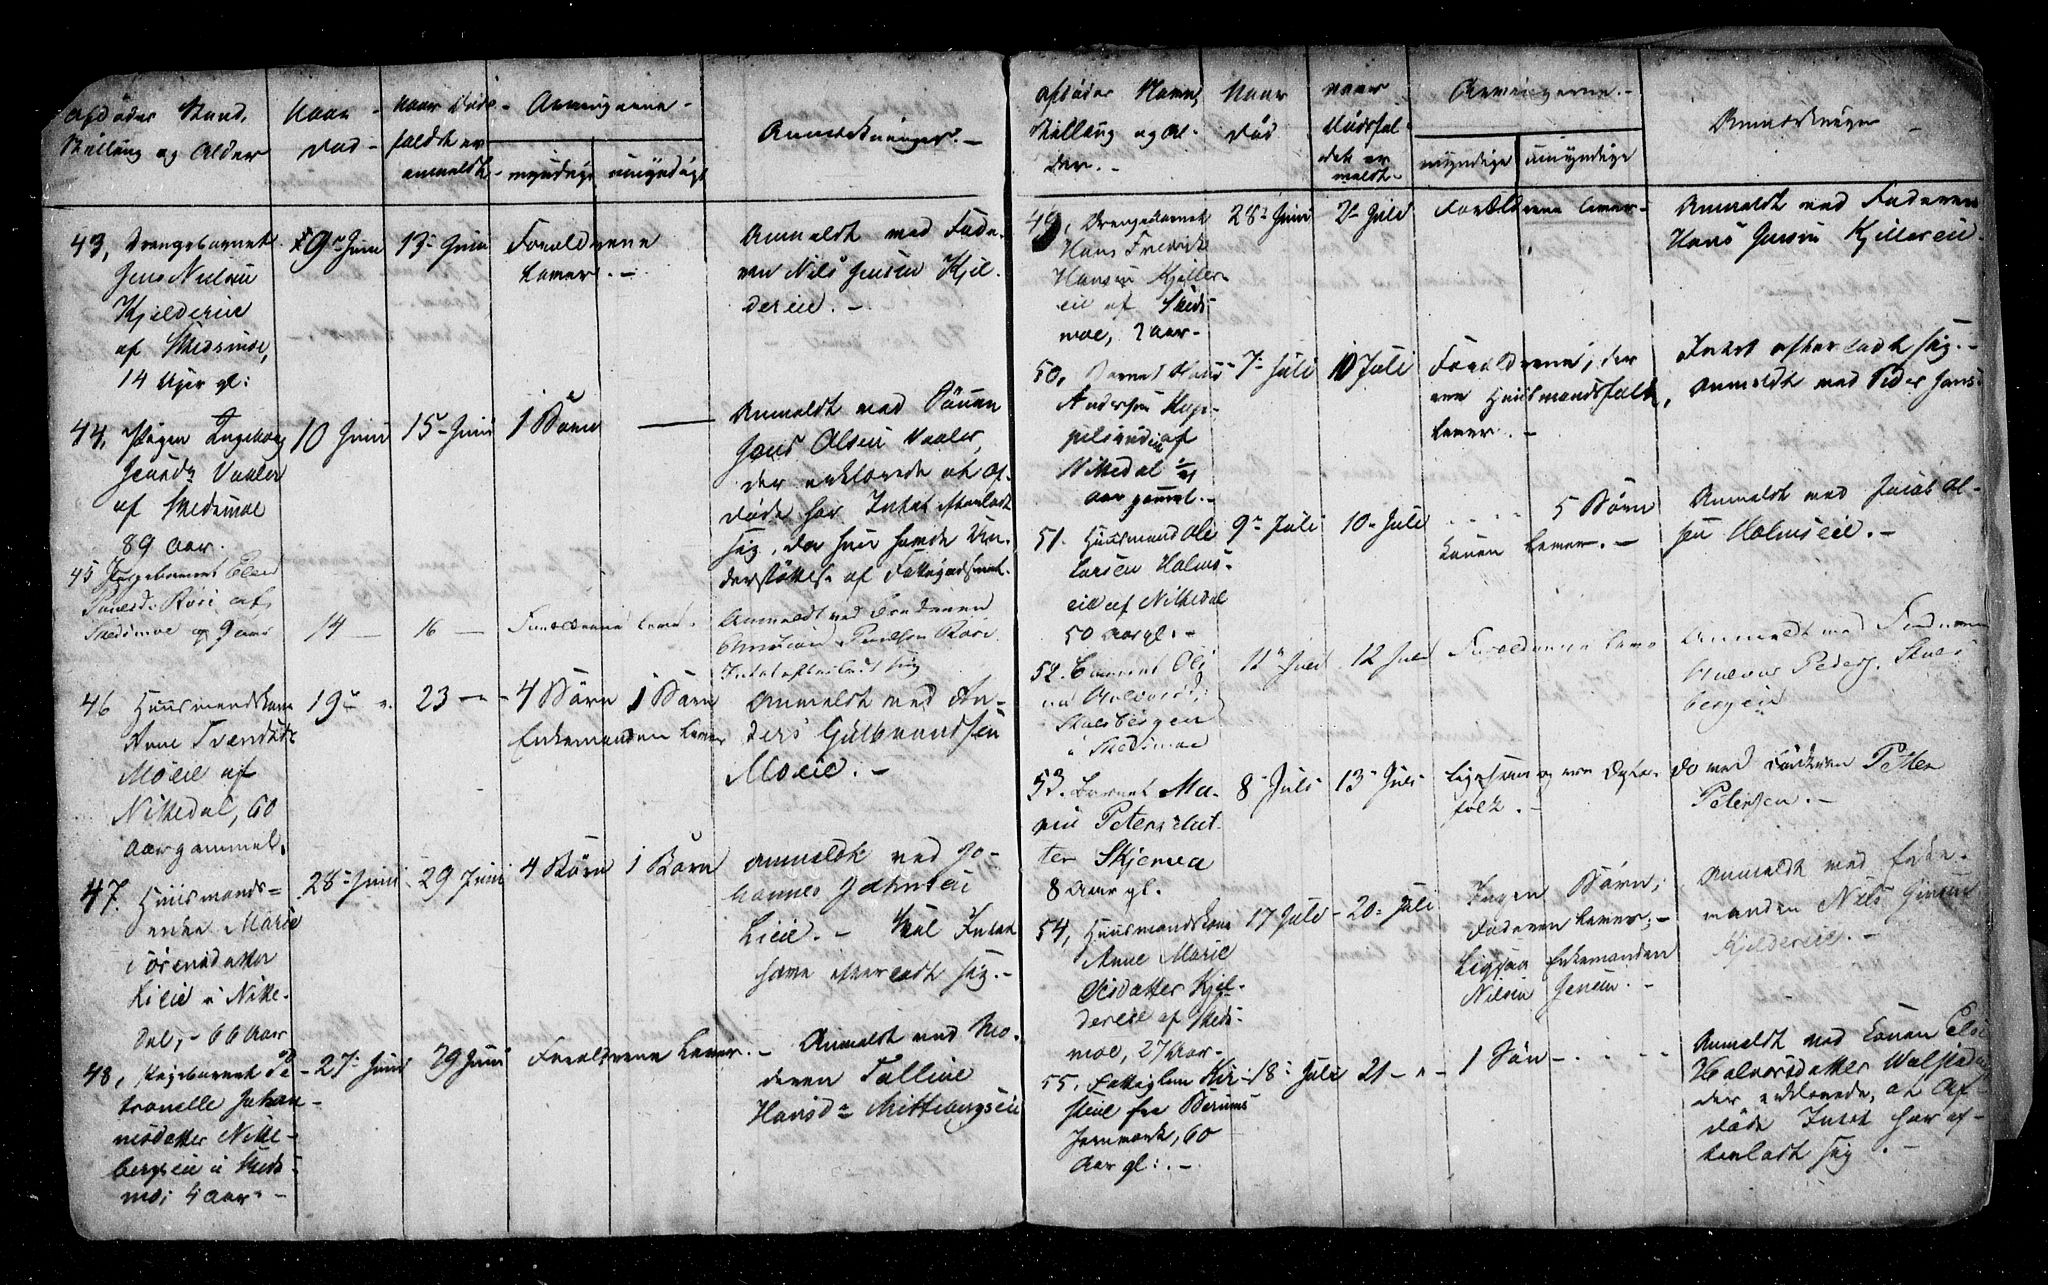 Afdødes Stand,
Stilling og Alder
Naar
Død
Naar Døds-
faldet er
anmeldt
Arvingerne
myndige
umyndige
Anmærkninger.
43, Drengebarnet
Jens Nielsen
Kjeldereie
af Skedsmoe,
14 Uger gl:
9de Juni
13de Juni
Forældrene
lever.
Anmeldt ved Fade-
ren Nils Jensen Kjel-
dereie.
44, Pigen Ingeborg
Vaaler
af Skedsmoe
89 Aar.
10 Juni
15de Juni
1 Barn
Anmeldt ved Sønen
Jens Olsen Vaaler,
der erklærede at Af-
døde har Intet efterladt
sig, da hun havde Un-
derstøttelse af Fattigvæsenet.
45 Pigebarnet
af
Skedsmoe
14
16
Forældrene lever.
Anmeldt ved Faderen
Christian
Intet efterladt sig
46 Huusmandskone
Anne
Moeie af
Nittedal, 60
Aar gammel.
19de
23
4 Børn
1 Barn
Enkemanden lever
Anmeldt ved An-
ders Gulbrandsen
Moeie.
47. Huusmands-
enke Marie
Sørensdatter
Lieie i Nitte-
dal, 66 Aar
28de Juni
29 Juni
4 Børn
1 Barn
Anmeldt ved Jo-
hannes
Lieie. Skal Intet
have efterladt sig.
48, Pigebarnet Pe-
tronelle Johan-
nesdatter Nitte-
bergseie i Skeds-
mo; 4 Aar
27de Juni
29 Juni
Forældrene lever.
Anmeldt ved Mo-
deren
Hansdr Nittebergseie
Afdødes Navn,
Stilling og Al-
der.
Naar
Død
naar
Dødsfal-
det er
meldt
Arvingerne.
myndige
umyndige
Anmærkninger
49, Drengebarnet
Hans Fredrik
Hansen Kjeller-
eie af Skeds-
moe, 2 Aar
28de Juni
2de Juli
Forældrene lever
Anmeldt ved Faderen
Hans Jensen Kjellereie.
50, Barnet Hans
Andersen
af
Nittedal
Aar gammel.
7de Juli
10 Juli
Forældrene, der
ere Huusmandsfolk,
lever.
Intet efterladt sig.
Anmeldt ved Peder
51. Huusmand Ole
Larsen Holms-
eie af Nittedal
50 Aar gl.
9de Juli
10de Juli
5 Børn
Konen lever.
Anmeldt ved Jacob Ol-
sen Holmseie.
52. Barnet
i Skedsmoe
11te Juli
12 Juli
Forældrene leve
Anmeldt ved Faderen
Halvor
53. Barnet Ma-
rie Petersdat-
ter Skjerva
8 Aar gl.
8de Juli
13de Juli
folk.
Do ved Faderen Petter
Petersen.
54, Huusmandskone
Anne Marie
Olsdatter Kjel-
dereie af Skeds-
moe, 27 Aar
17 Juli
20de Juli
Ingen Børn;
Faderen lever;
Ligesaa Enkemanden
Nilsen Jensen.
Anmeldt ved Enke-
manden Nils Jensen
Kjeldereie.
55. Fattiglem
fra Bærums
Jernværk, 60
Aar gl:.
18de Juli
21
1 Søn
Anmeldt ved Konen
Halvorsdatter
der erklærede, at Af-
døde Intet har ef-
terladt sig.